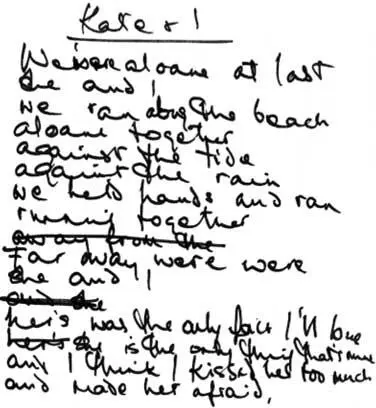 Kate & I
We were aloane at last
She and I
we ran along the beach
aloane together
against the tide
against the rain
we held hands and ran
running together
away from the
Far away were were
she and I
and she
her's was the only face I'll love
her's she is the only thing that's mine
and I think I kissed her too much
and made her afraid.